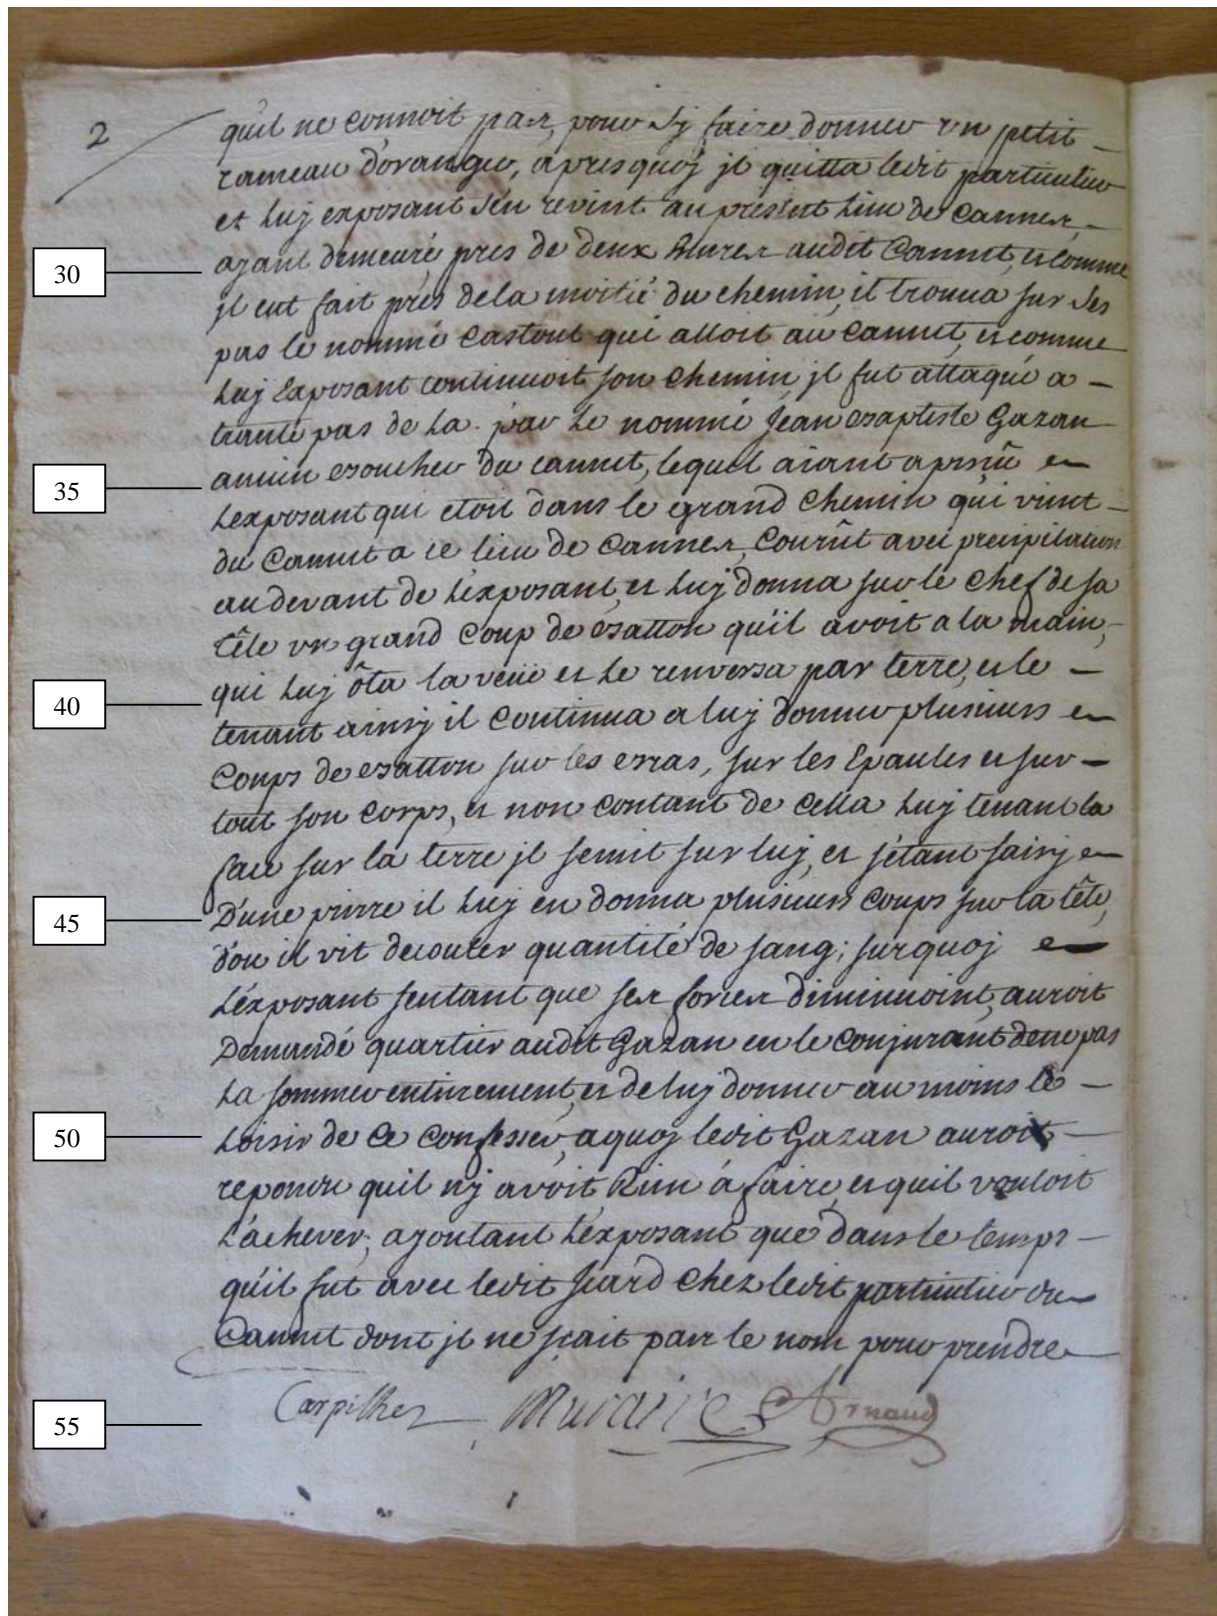 2
quil ne connoit pas, pour sy faire donner un petit
rameau d'oranger, apres quoj jl quitta ledit particulier
et luj exposant s'en revint au present lieu de Cannes,
30
ayant demeuré pres de deux heures audit Cannet, et comme
jl eut fait prés de la moitié du chemin, il trouva sur ses
pas le nommé Castout qui alloit au Cannet, et comme
luj Exposant continuoit son chemin, jl fut attaqué a
trante pas de la par le nommé Jean Baptiste Gazan
35
ancien Boucher du Cannet, lequel aiant
Lexposant qui etoit dans le grand chemin qui vient
du Cannet a ce lieu de Cannes, Courût avec precipitation
au devant de Lexposant, et luj donna sur le chef de sa
tête un grand Coup de Batton qu'il avoit a la main,
40
qui luj ôta la veüe et le renversa par terre, et le
tenant ainsy il Continua a luj donner plusieurs
Coups de Batton sur les Bras, sur les Epaules et sur
tout son Corps, et non Contant de Cella luj tenant la
face sur la terre jl semit sur luj, et s'étant saisy
45
D'une pierre il luj en donna plusieurs Coups sur la tête,
d'ou il vit decouler quantité de sang; surquoj
Léxposant sentant que ses forces diminuoint, auroit
Demandé quartier audit Gazan en le Conjurant de ne pas
La sommer entierement, et de luj donner au moins le
50
Loisir de Ce Confesser, a quoj ledit Gazan auroit
repondu quil n'y avoit Rien á faire, et quil vouloit
L'achever; ajoutant Léxposant que dans le temps
qu'il fut avec ledit Jeard Chez ledit particulier du
Cannet dont jl ne sçait pas le nom pour prendre
55
Carpilhet Muraire Arnaud